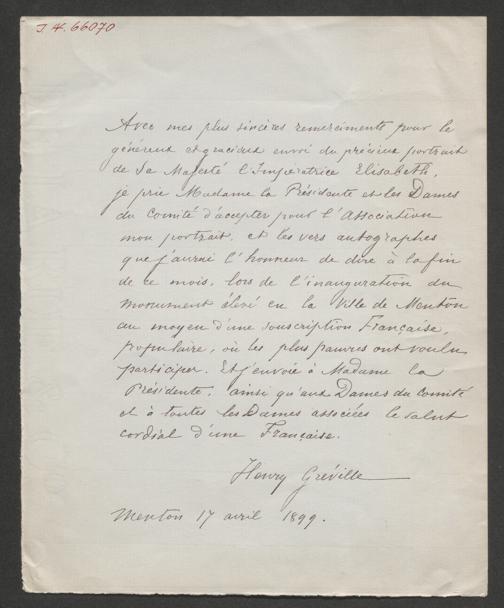 J. N. 66070
Avec mes plus sincères remerciments pour le
généreux et gracieux envoi du précieux portrait
de Sa Majesté l'Impératrice Elisabeth,
je prie Madame la Présidente et les Dames
du Comité d'accepter pour l'Association
mon portrait, et les vers autographes
que j'aurai l'honneur de dire à la fin
de ce mois, lors de l'inauguration du
monument élevé en la Ville de Menton
au moyen d'une souscription Française,
populaire, où les plus pauvres ont voulu
participer. Et j'envoie à Madame la
Présidente, ainsi qu'aux Dames du Comité
et à toutes les Dames associées le salut
cordial d'une Française.
Henry Gréville
Menton 17 avril 1899.